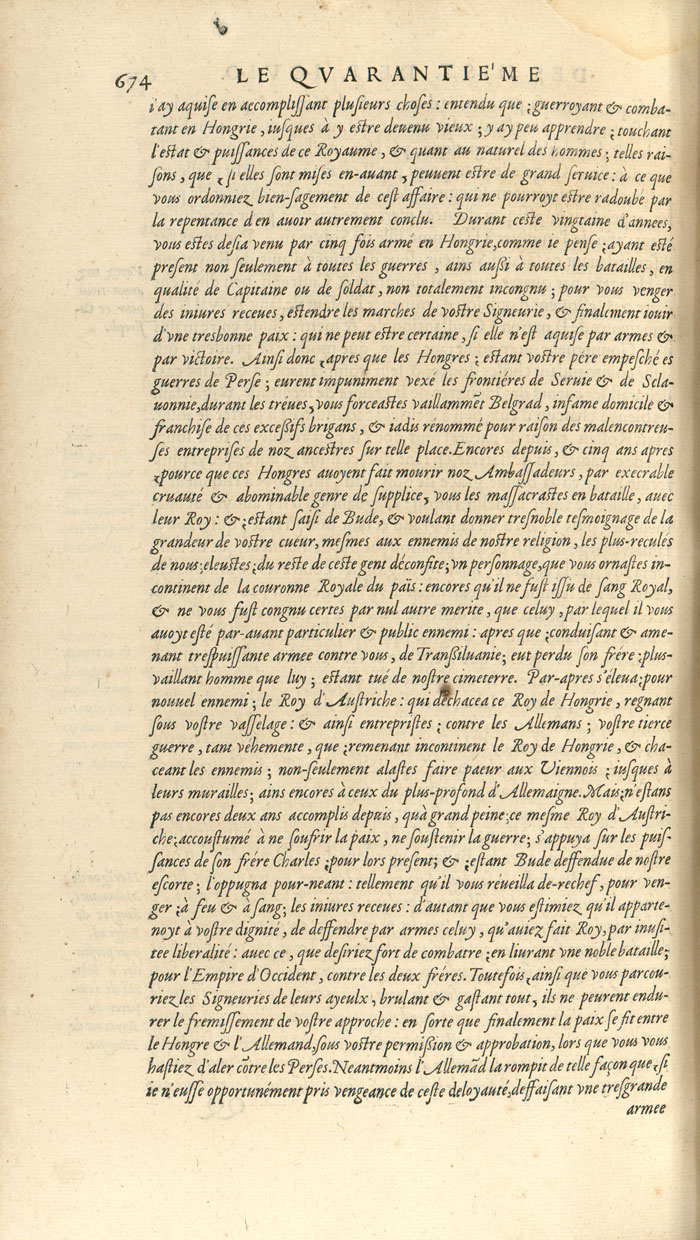 674 LE QVARANTIE'ME
i'ay aquise en accomplissant plusieurs choses : entendu que ; guerroyant & comba-
tant en Hongrie, iusques à y estre deuenu vieux ; y ay peu apprendre ; touchant
l'estat & puissances de ce Royaume, & quant au naturel des hommes ; telles rai-
sons, que , si elles sont mises en-auant , peuuent estre de grand seruice : à ce que
vous ordonniez bien-sagement de cest affaire : qui ne pourroyt estre radoubé par
la repentance d'en auoir autrement conclu. Durant ceste vingtaine d'annees,
vous estes desia venu par cinq fois armé en Hongrie, comme ie pense ; ayant esté
present non seulement à toutes les guerres , ains aussi à toutes les batailles, en
qualité de Capitaine ou de soldat, non totalement incongnu ; pour vous venger
des iniures receues, estendre les marches de vostre Signeurie, & finalement iouir
d'vne tresbonne paix : qui ne peut estre certaine, si elle n'est aquise par armes &
par victoire. Ainsi donc , apres que les Hongres ; estant vostre pére empesché es
guerres de Perse ; eurent impuniment vexé les frontiéres de Seruie & de Scla-
uonnie, durant les tréues, vous forceastes vaillammēt Belgrad, infame domicile &
franchise de ces excessifs brigans, & iadis renommé pour raison des malencontreu-
ses entreprises de noz ancestres sur telle place. Encores depuis, & cinq ans apres
, pource que ces Hongres auoyent fait mourir noz Ambassadeurs, par execrable
cruauté & abominable genre de supplice, vous les massacrastes en bataille, auec
leur Roy : & ; estant saisi de Bude, & voulant donner tresnoble tesmoignage de la
grandeur de vostre cueur, mesmes aux ennemis de nostre religion, les plus-reculés
de nous ; eleustes ; du reste de ceste gent déconfite ; vn personnage, que vous ornastes in-
continent de la couronne Royale du païs : encores qu'il ne fust issu de sang Royal,
& ne vous fust congnu certes par nul autre merite, que celuy, par lequel il vous
auoyt esté par-auant particulier & public ennemi : apres que ; conduisant & ame-
nant trespuissante armee contre vous, de Transsiluanie ; eut perdu son frére : plus-
vaillant homme que luy ; estant tué de nostre cimeterre. Par-apres s'éleua ; pour
nouuel ennemi ; le Roy d'Austriche : qui déchacea ce Roy de Hongrie, regnant
sous vostre vasselage : & ainsi entrepristes ; contre les Allemans ; vostre tierce
guerre, tant véhemente, que ; remenant incontinent le Roy de Hongrie, & cha-
ceant les ennemis ; non-seulement alastes faire paeur aux Viennois ; iusques à
leurs murailles ; ains encores à ceux du plus-profond d'Allemaigne. Mais ; n'estans
pas encores deux ans accomplis depuis, qu'à grand peine ; ce mesme Roy d'Austri-
che ; accoustumé à ne soufrir la paix, ne soustenir la guerre ; s'appuya sur les puis-
sances de son frére Charles ; pour lors present ; & ; estant Bude deffendue de nostre
escorte ; l'oppugna pour-neant : tellement qu'il vous réueilla de-rechef, pour ven-
ger ; à feu & à sang ; les iniures receues : d'autant que vous estimiez qu'il apparte-
noyt à vostre dignité, de deffendre par armes celuy, qu'auiez fait Roy, par inusi-
tee liberalité : auec ce, que desiriez fort de combatre ; en liurant vne noble bataille ;
pour l'Empire d'Occident, contre les deux fréres. Toutefois, ainsi que vous parcou-
riez les Signeuries de leurs ayeulx, brulant & gastant tout, ils ne peurent endu-
rer le fremissement de vostre approche : en sorte que finalement la paix se fit entre
le Hongre & l'Allemand, sous vostre permission & approbation, lors que vous vous
hastiez d'aler cōtre les Perses. Neantmoins l'Allemād la rompit de telle façon que , si
ie n'eusse opportunément pris vengeance de ceste deloyauté, deffaisant vne tresgrande
armee